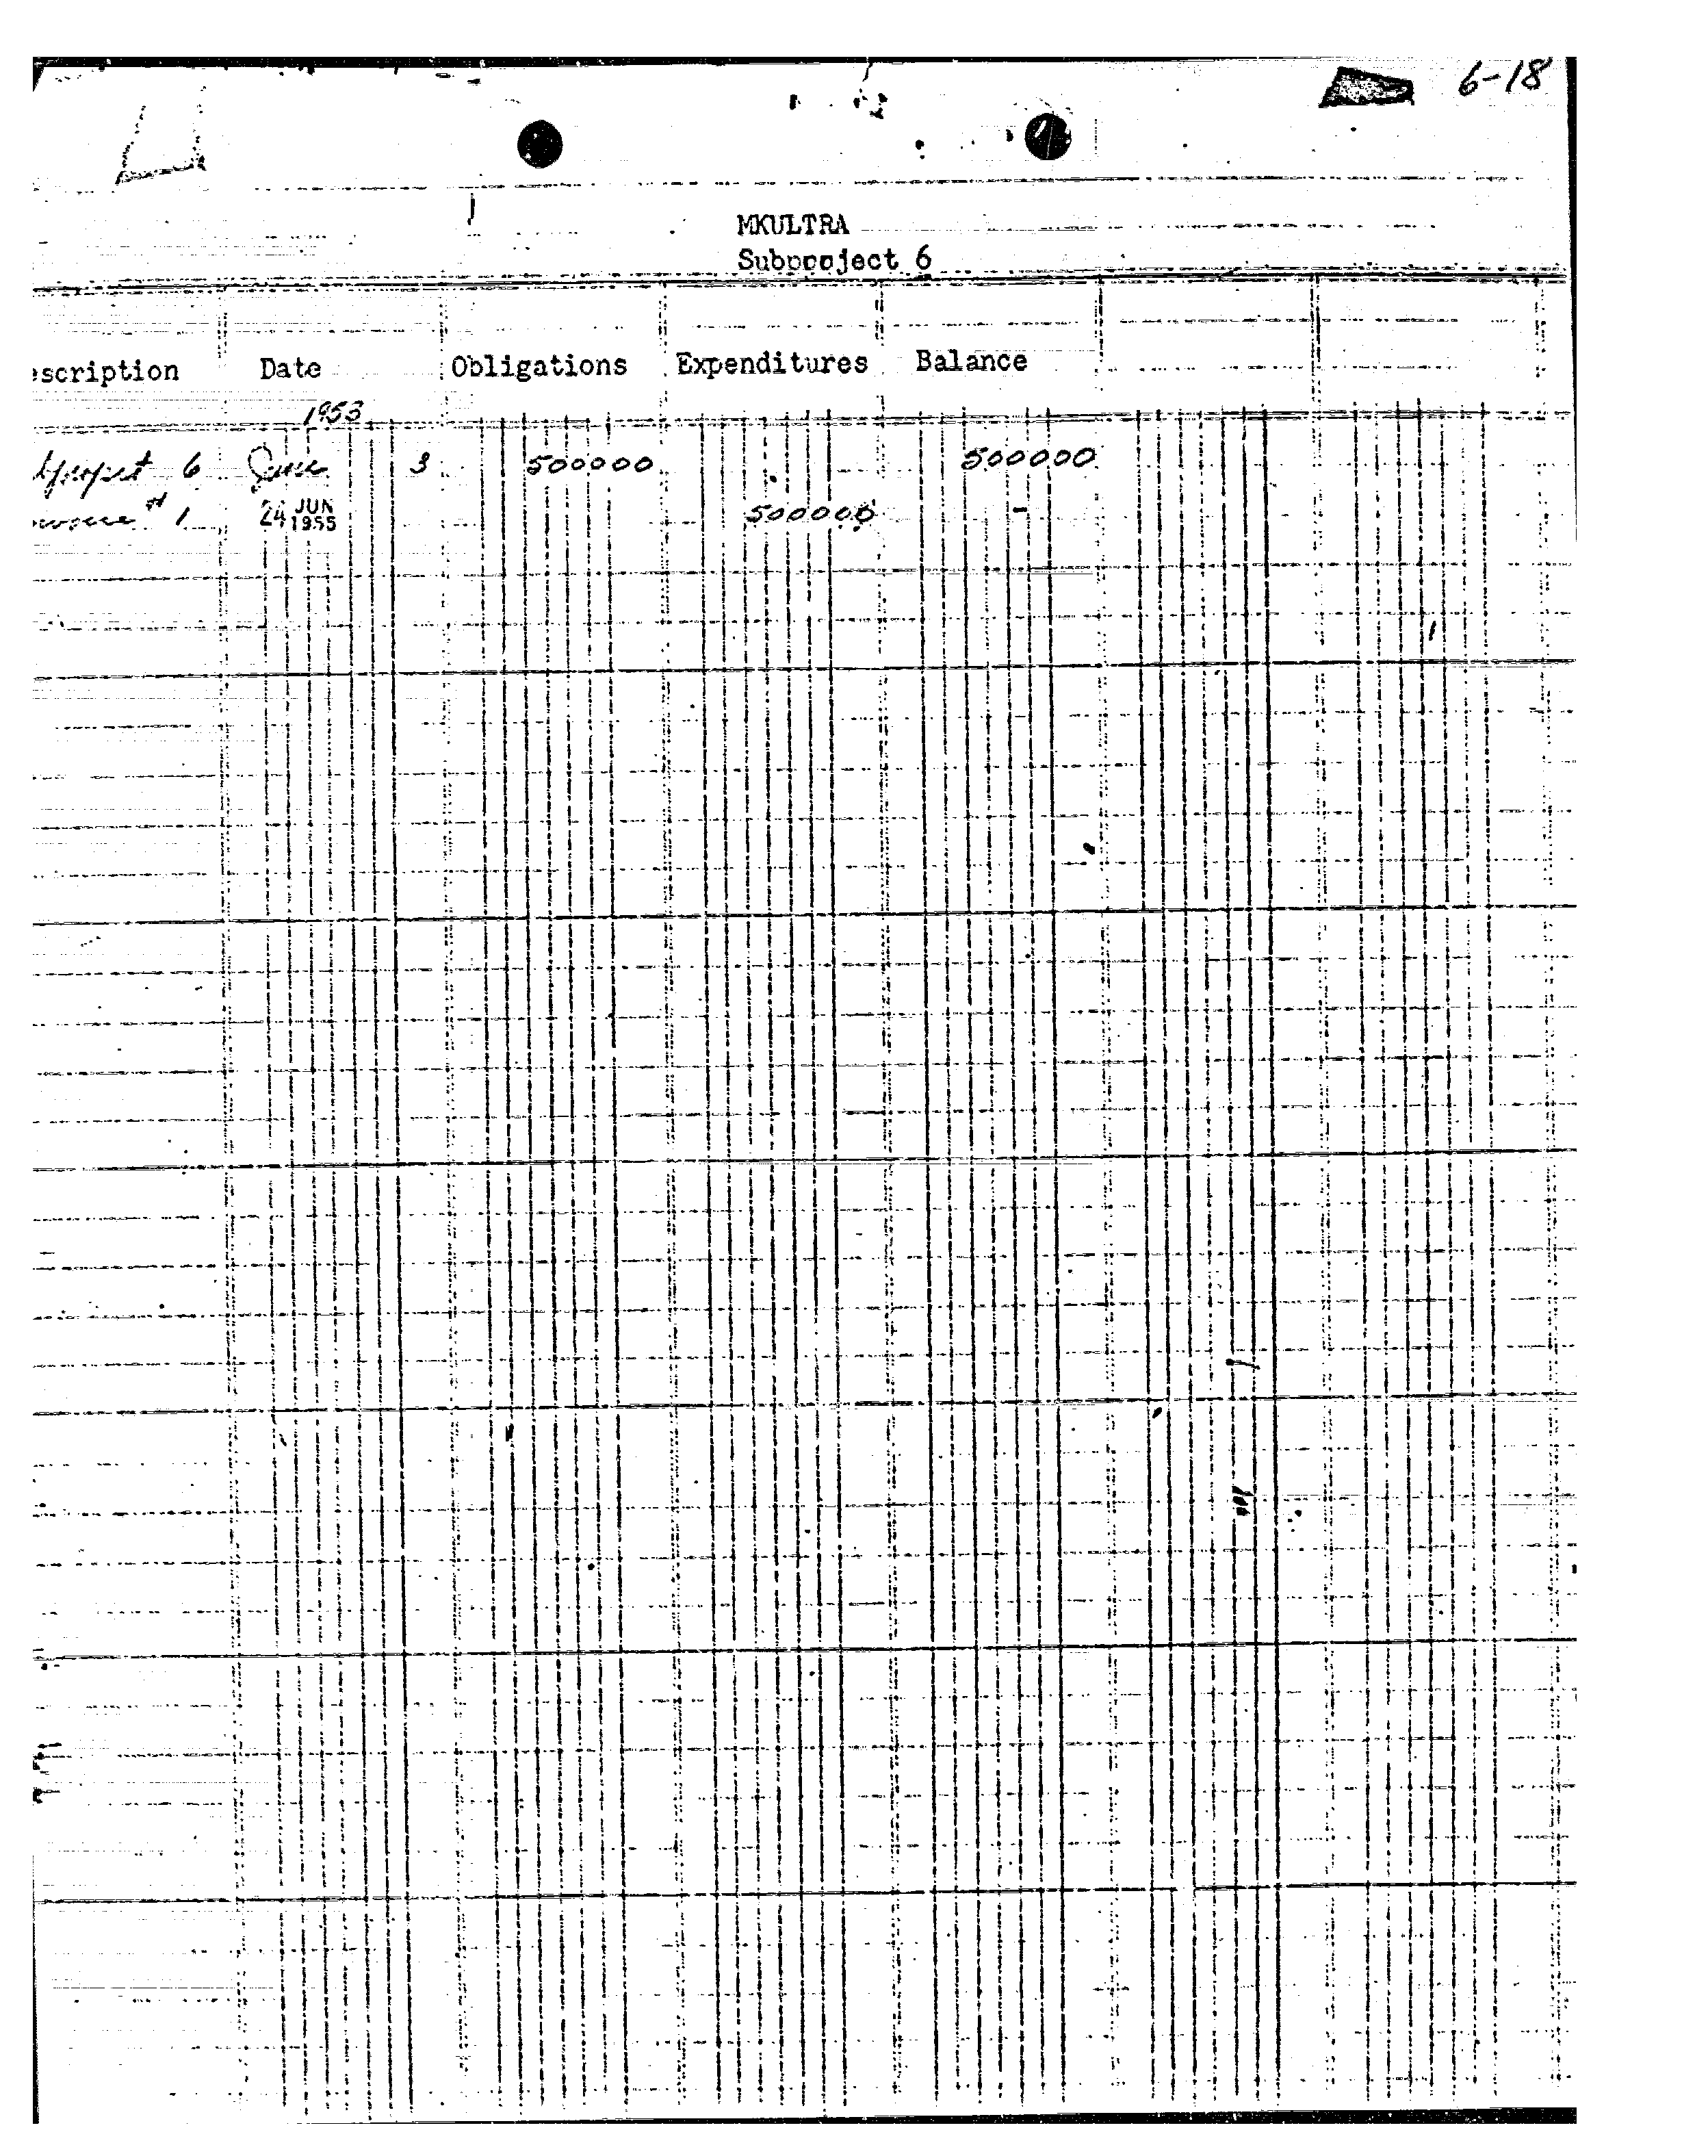 6-18
MKULTRA
Subproject 6
escription Date Obligations Expenditures Balance
1953
bproject 6 June 3 500000 500000
# 1 24 JUN 1955 500000 -